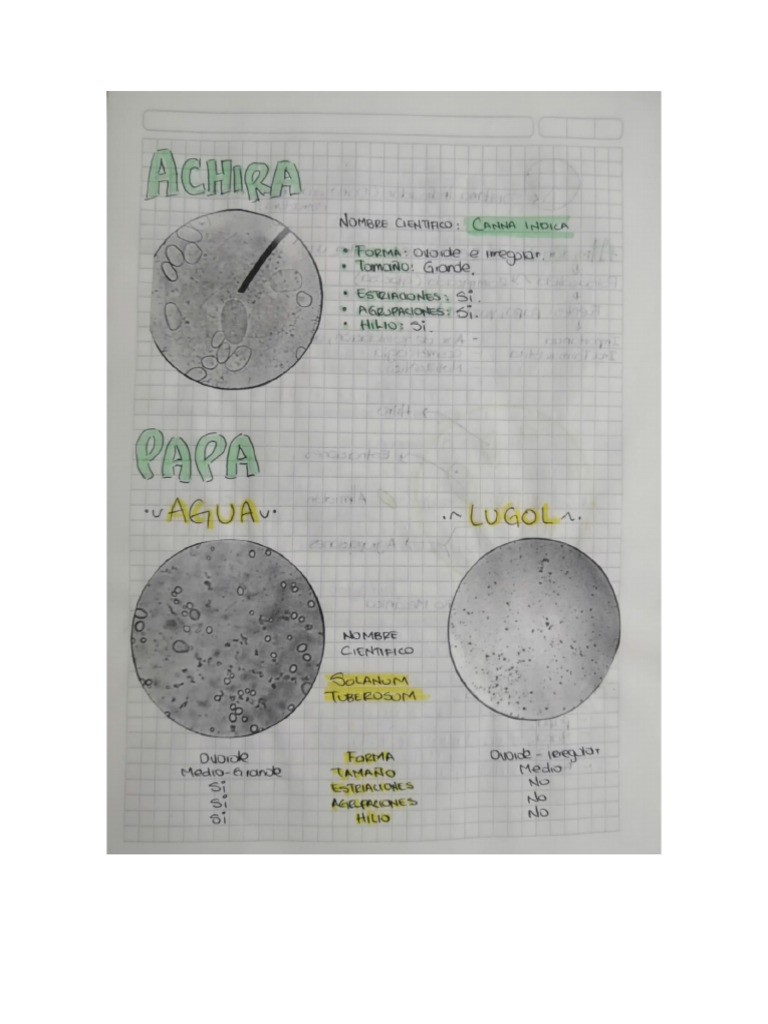 ACHIRA
NOMBRE CIENTIFICO: CANNA INDICA
• FORMA: Ovoide e irregular.
• TAMAÑO: Grande.
• ESTRIACIONES: Si.
• AGRUPACIONES: Si.
• HILIO: Si.
PAPA
AGUA
LUGOL
NOMBRE
CIENTIFICO
SOLANUM
TUBEROSUM
Ovoide FORMA Ovoide - irregular
Medio-Grande TAMAÑO Medio
Si ESTRIACIONES No
Si AGRUPACIONES No
Si HILIO No